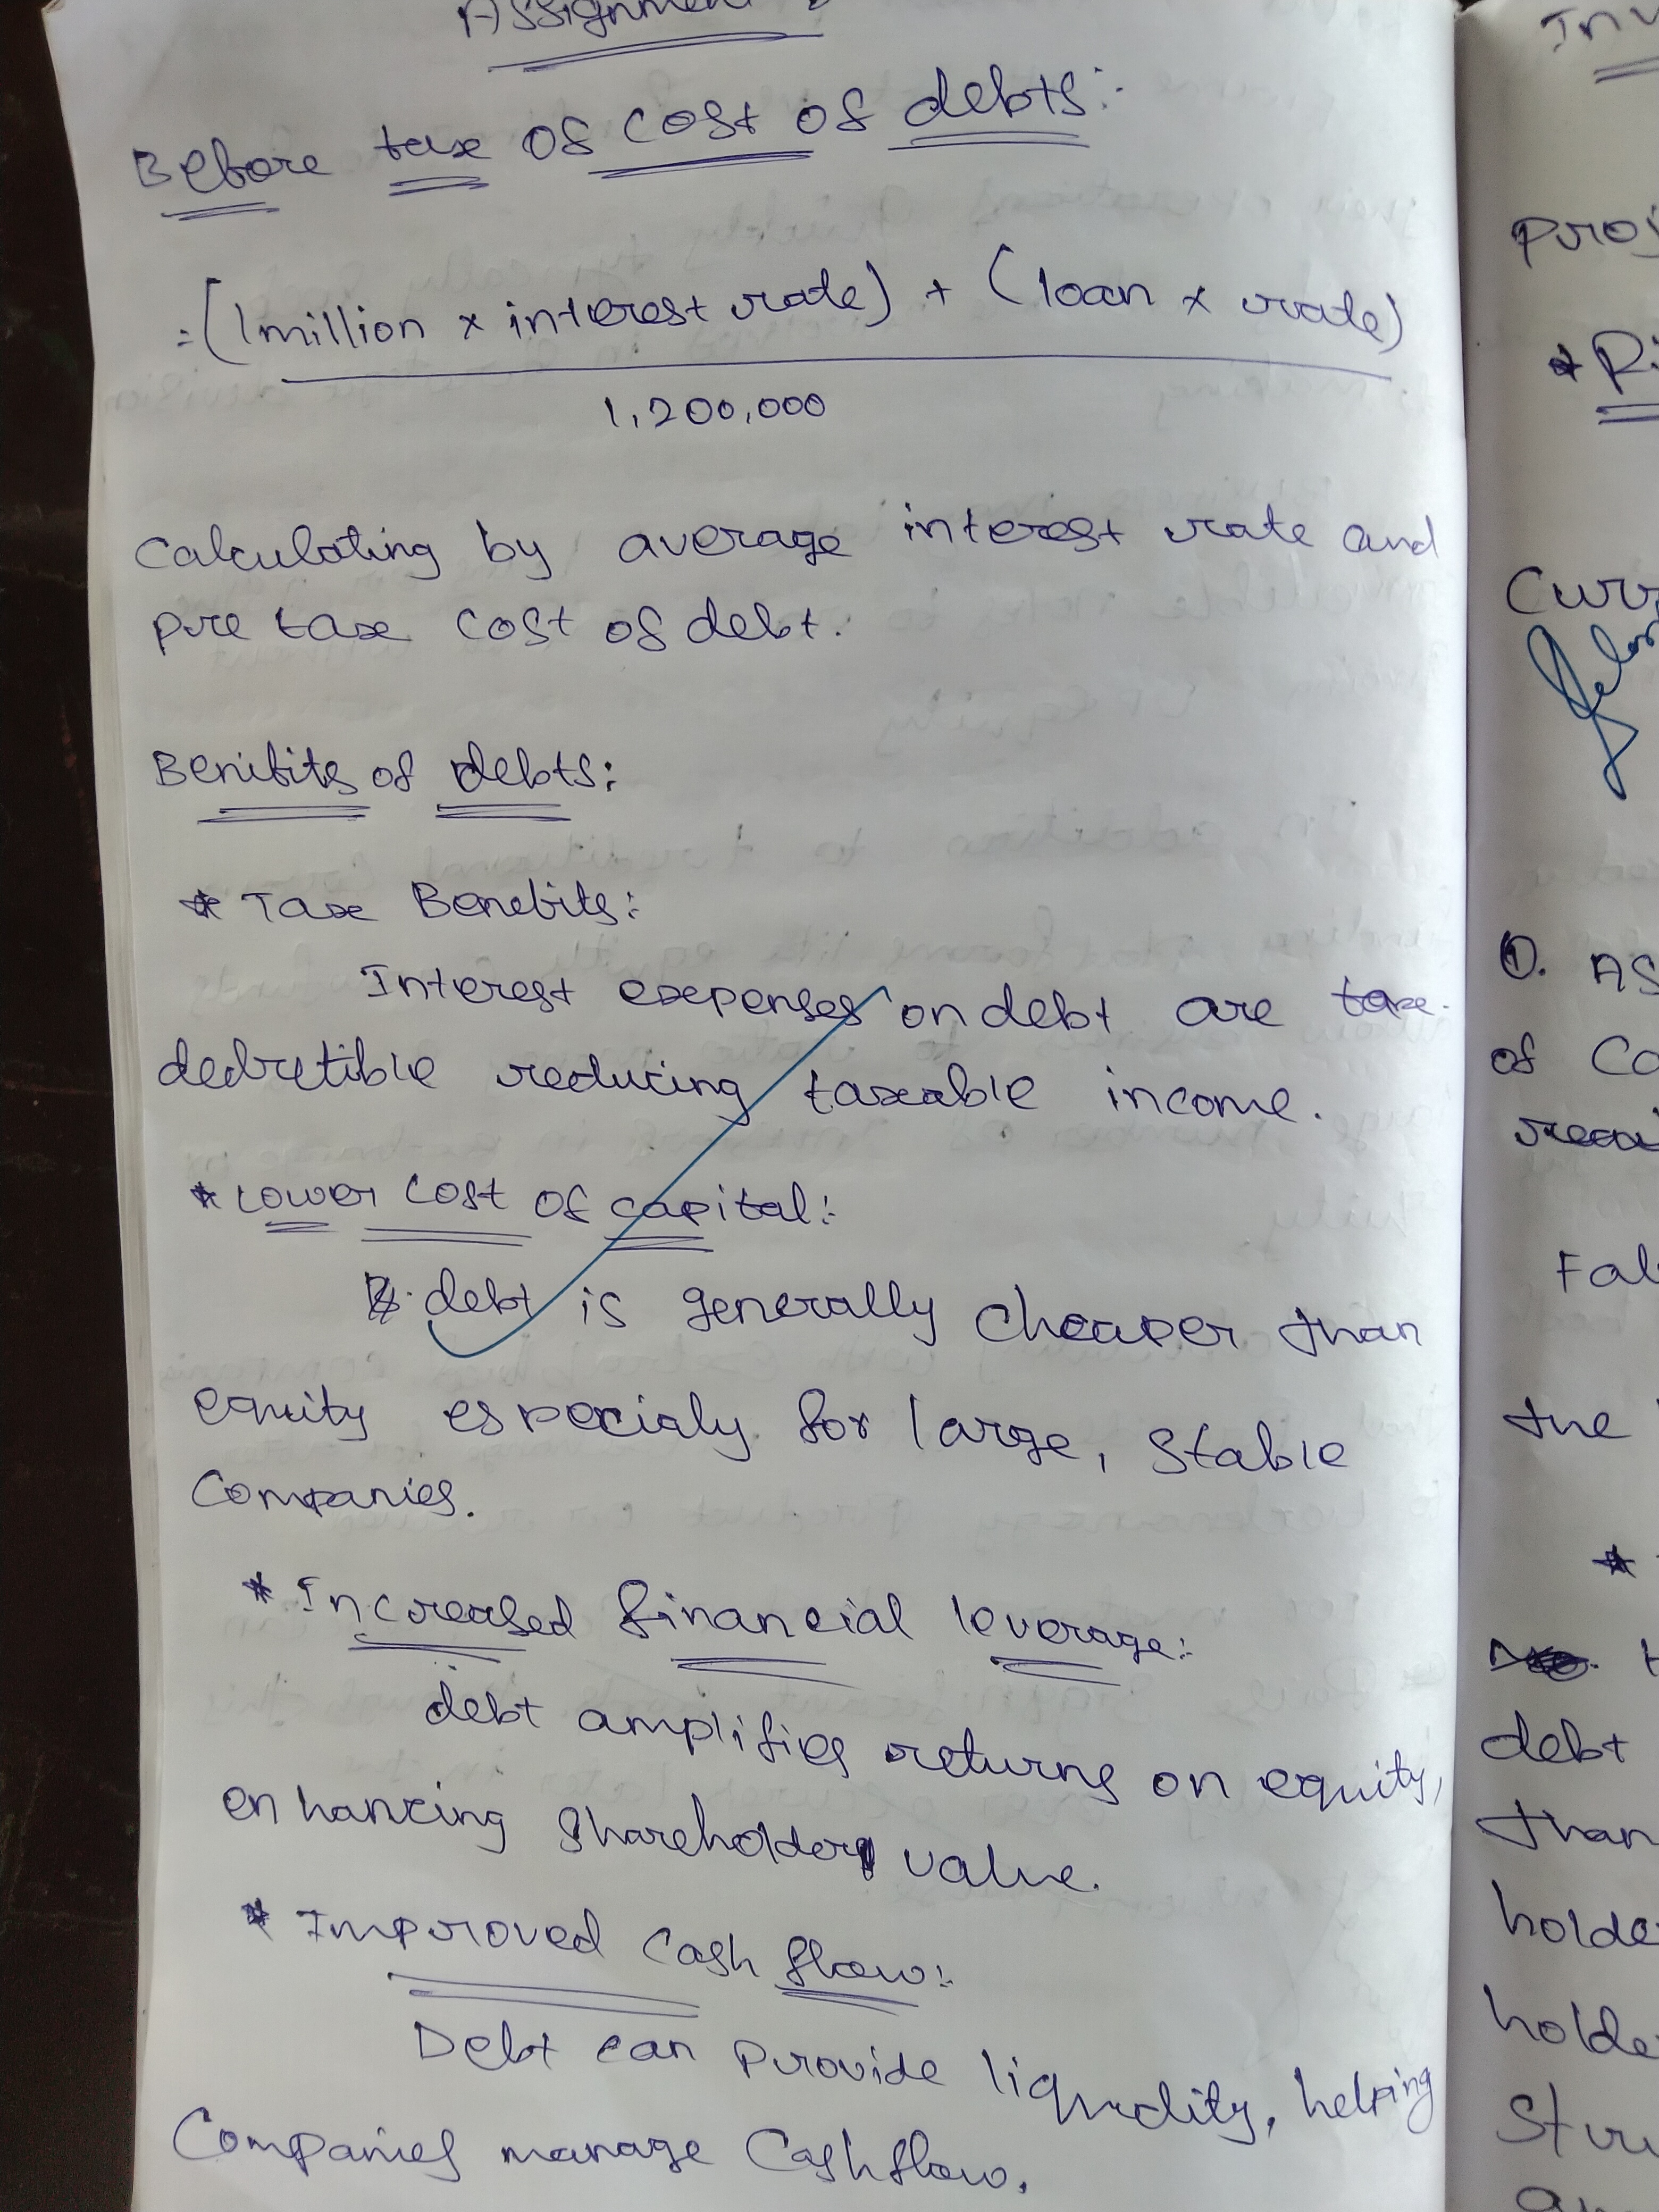 Assignment
Before tax of cost of debts:-
= (1million x interest rate) + (loan x rate)
1,200,000
calculating by average interest rate and
pre tax cost of debt.
Benifits of debts:
* Tax Benefits:
Interest expenses on debt are tax-
deductible reducing taxable income.
* Lower cost of capital:-
debt is generally cheaper than
equity especialy for large, stable
Companies.
* Increased financial leverage:-
debt amplifies returns on equity,
enhancing shareholder value.
* Improved cash flow:-
Debt can provide liquidity, helping
Companies manage Cashflow.
Inv
proj
* Ri
Curr
1. AS
of Co
Fal
the
*
debt
than
holde
holde
Stru